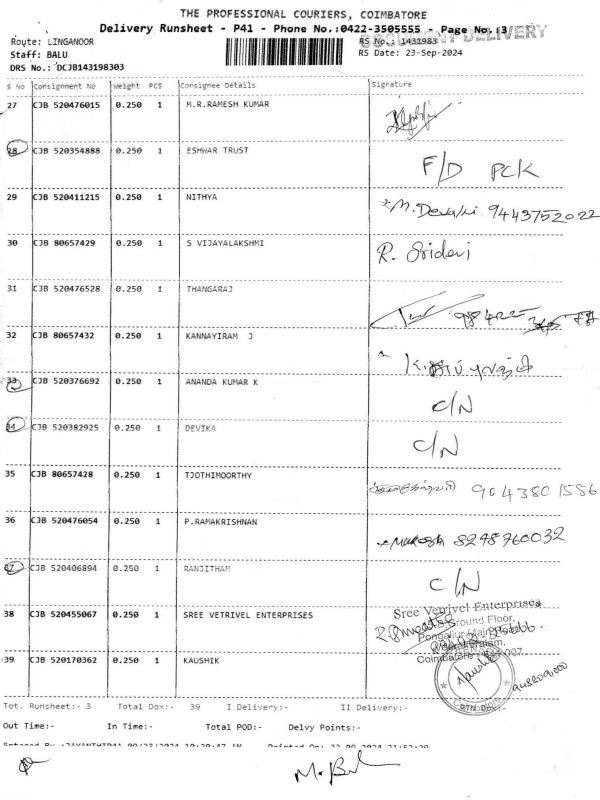 THE PROFESSIONAL COURIERS, COIMBATORE
Delivery Runsheet - P41 - Phone No.:0422-3505555 - Page No.:3
Route: LINGANOOR
RS No.: 1431983
Staff: BALU
RS Date: 23-Sep-2024
DRS No.: DCJB143198303
S No Consignment No Weight PCS Consignee Details Signature
27 CJB 520476015 0.250 1 M.R.RAMESH KUMAR
28 CJB 520354888 0.250 1 ESHWAR TRUST F/D PCK
29 CJB 520411215 0.250 1 NITHYA M. Devaki 9443752022
30 CJB 80657429 0.250 1 S VIJAYALAKSHMI R. Sridevi
31 CJB 520476528 0.250 1 THANGARAJ
32 CJB 80657432 0.250 1 KANNAYIRAM J
33 CJB 520376692 0.250 1 ANANDA KUMAR K C/N
34 CJB 520382925 0.250 1 DEVIKA C/N
35 CJB 80657428 0.250 1 TJOTHIMOORTHY 9043801556
36 CJB 520476054 0.250 1 P.RAMAKRISHNAN 8248760032
37 CJB 520406894 0.250 1 RANJITHAM C/N
38 CJB 520455067 0.250 1 SREE VETRIVEL ENTERPRISES Sree Vetrivel Enterprises
Ground Floor,
39 CJB 520170362 0.250 1 KAUSHIK Kaushik
Tot. Runsheet:- 3 Total Dox:- 39 I Delivery:- II Delivery:-
Out Time:- In Time:- Total POD:- Delvy Points:-